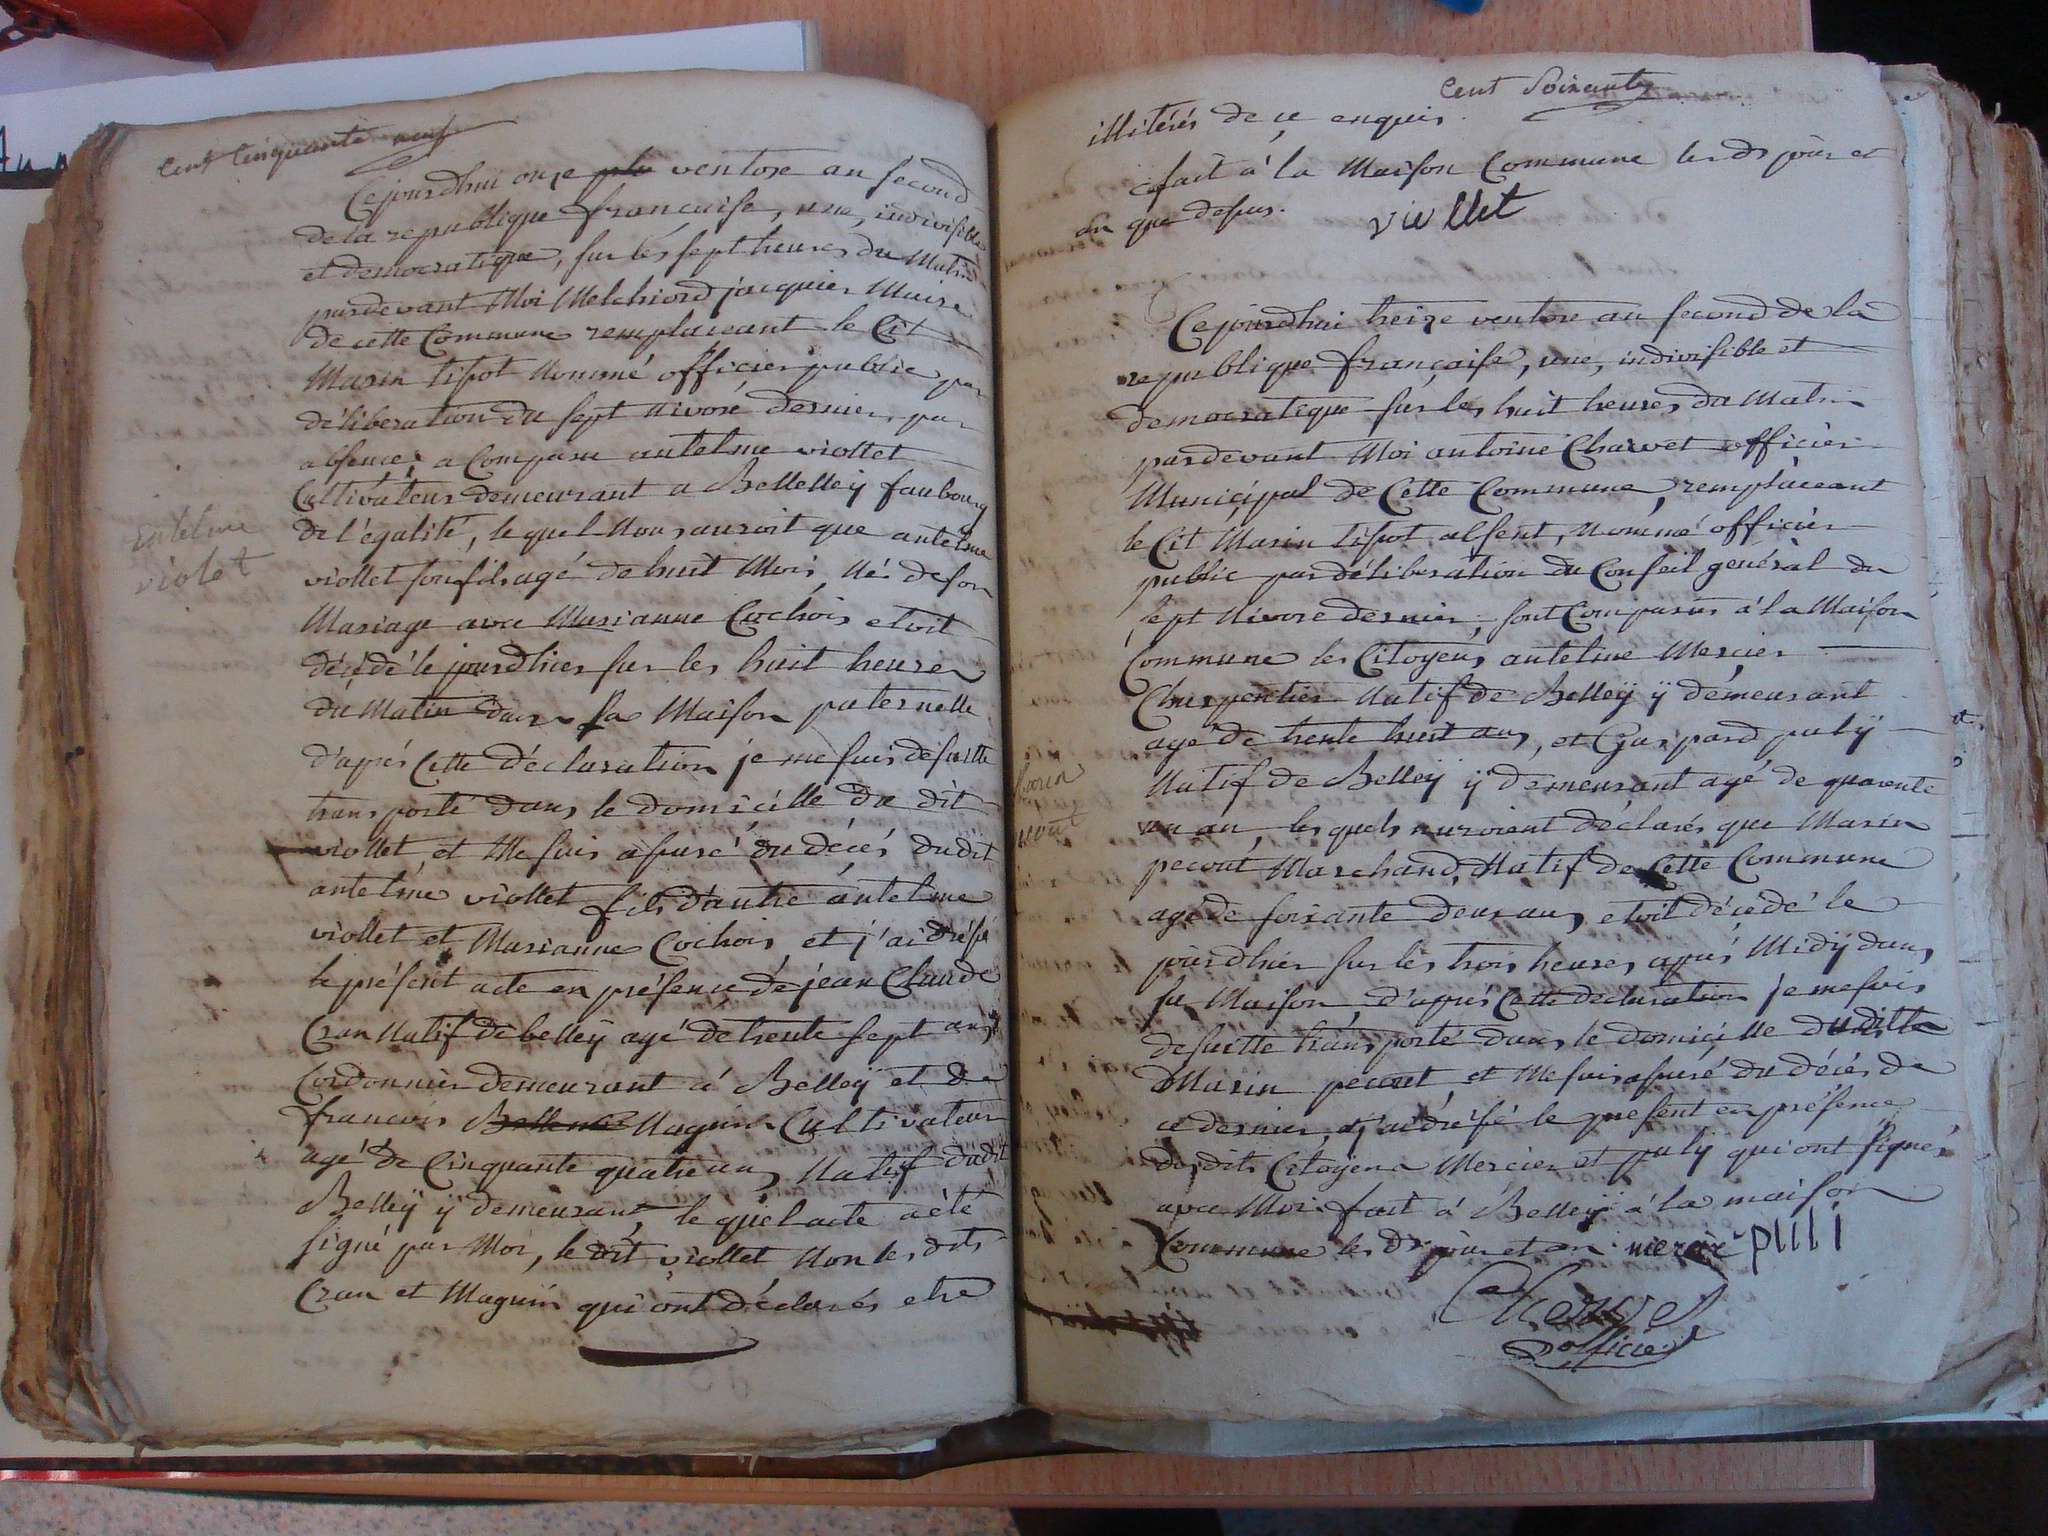 Cent Cinquante neuf
Cejourdhui onze ventose an second
de la republique française, une, indivisible
et democratique, sur les sept heures du Matin
pardevant Moi Melchiord jacquier Maire
de cette Commune remplaceant le Cit
Marin tipot Nommé officier public par
déliberation du sept Nivose dernier, par
absence, a Comparu antelme viollet
Cultivateur demeurant a Bellelleÿ faubourg
de l'égalité, le quel Nous auroit que antelme
viollet son fils agé de huit Mois, Nés de son
Mariage avec Marianne Cochois etoit
décédé le jourdhier sur les huit heures
du Matin dans sa Maison paternelle
d'aprés Cette déclaration je me suis desuitte
transporté dans le domicille du dit
viollet, et Me suis assuré du décés dudit
antelme viollet fils d'autre antelme
viollet et Marianne Cochois, et j'ai dréssé
le présent acte en présence de jean Claude
Cran Natif de belleÿ agé de trente sept ans
Cordonnier demeurant a Belleÿ et de
francois Maguin Cultivateur
agé de Cinquante quatre ans Natif dudit
Belleÿ ÿ demeurant, le quel acte a été
signé par Moi, le dit viollet Non les dits
Cran et Maguin qui ont déclarés etre
antelme
violet
Cent Soixante
illitérés de ce enquis
fait à la Maison Commune les ds jour et
an que dessus.
viollet
Cejourdhui treize ventose an second de la
republique française, une, indivisible et
democratique sur les huit heures du Matin
pardevant Moi antoine Charvet officier
Municipal de Cette Commune, remplaceant
le Cit Marin tipot absent, Nommé officier
public par déliberation du Conseil general du
sept Nivose dernier, sont Comparus à la Maison
Commune les Citoyens antelme Mercier
Charpentier Natif de Belleÿ ÿ démeurant
agé de trente huit ans, et Gaspard pulÿ
Natif de Belleÿ ÿ demeurant agé de quarente
un an, les quels auroient déclarés que Marin
pecout Marchand, Natif de Cette Commune
agé de soixante deux ans, etoit décédé le
jourdhier sur les trois heures aprés Midÿ dans
sa Maison, d'aprés Cette déclaration je me suis
desuitte transporté dans le domicille dudit
Marin pecout, et Me suis assuré du décés de
ce dernier, et j'ai dréssé le present en présence
desdits Citoyens Mercier et pulÿ qui ont signés
avec Moi fait à Belleÿ à la maison
Commune les ds jour et an mercie pulli
Charvet
officier